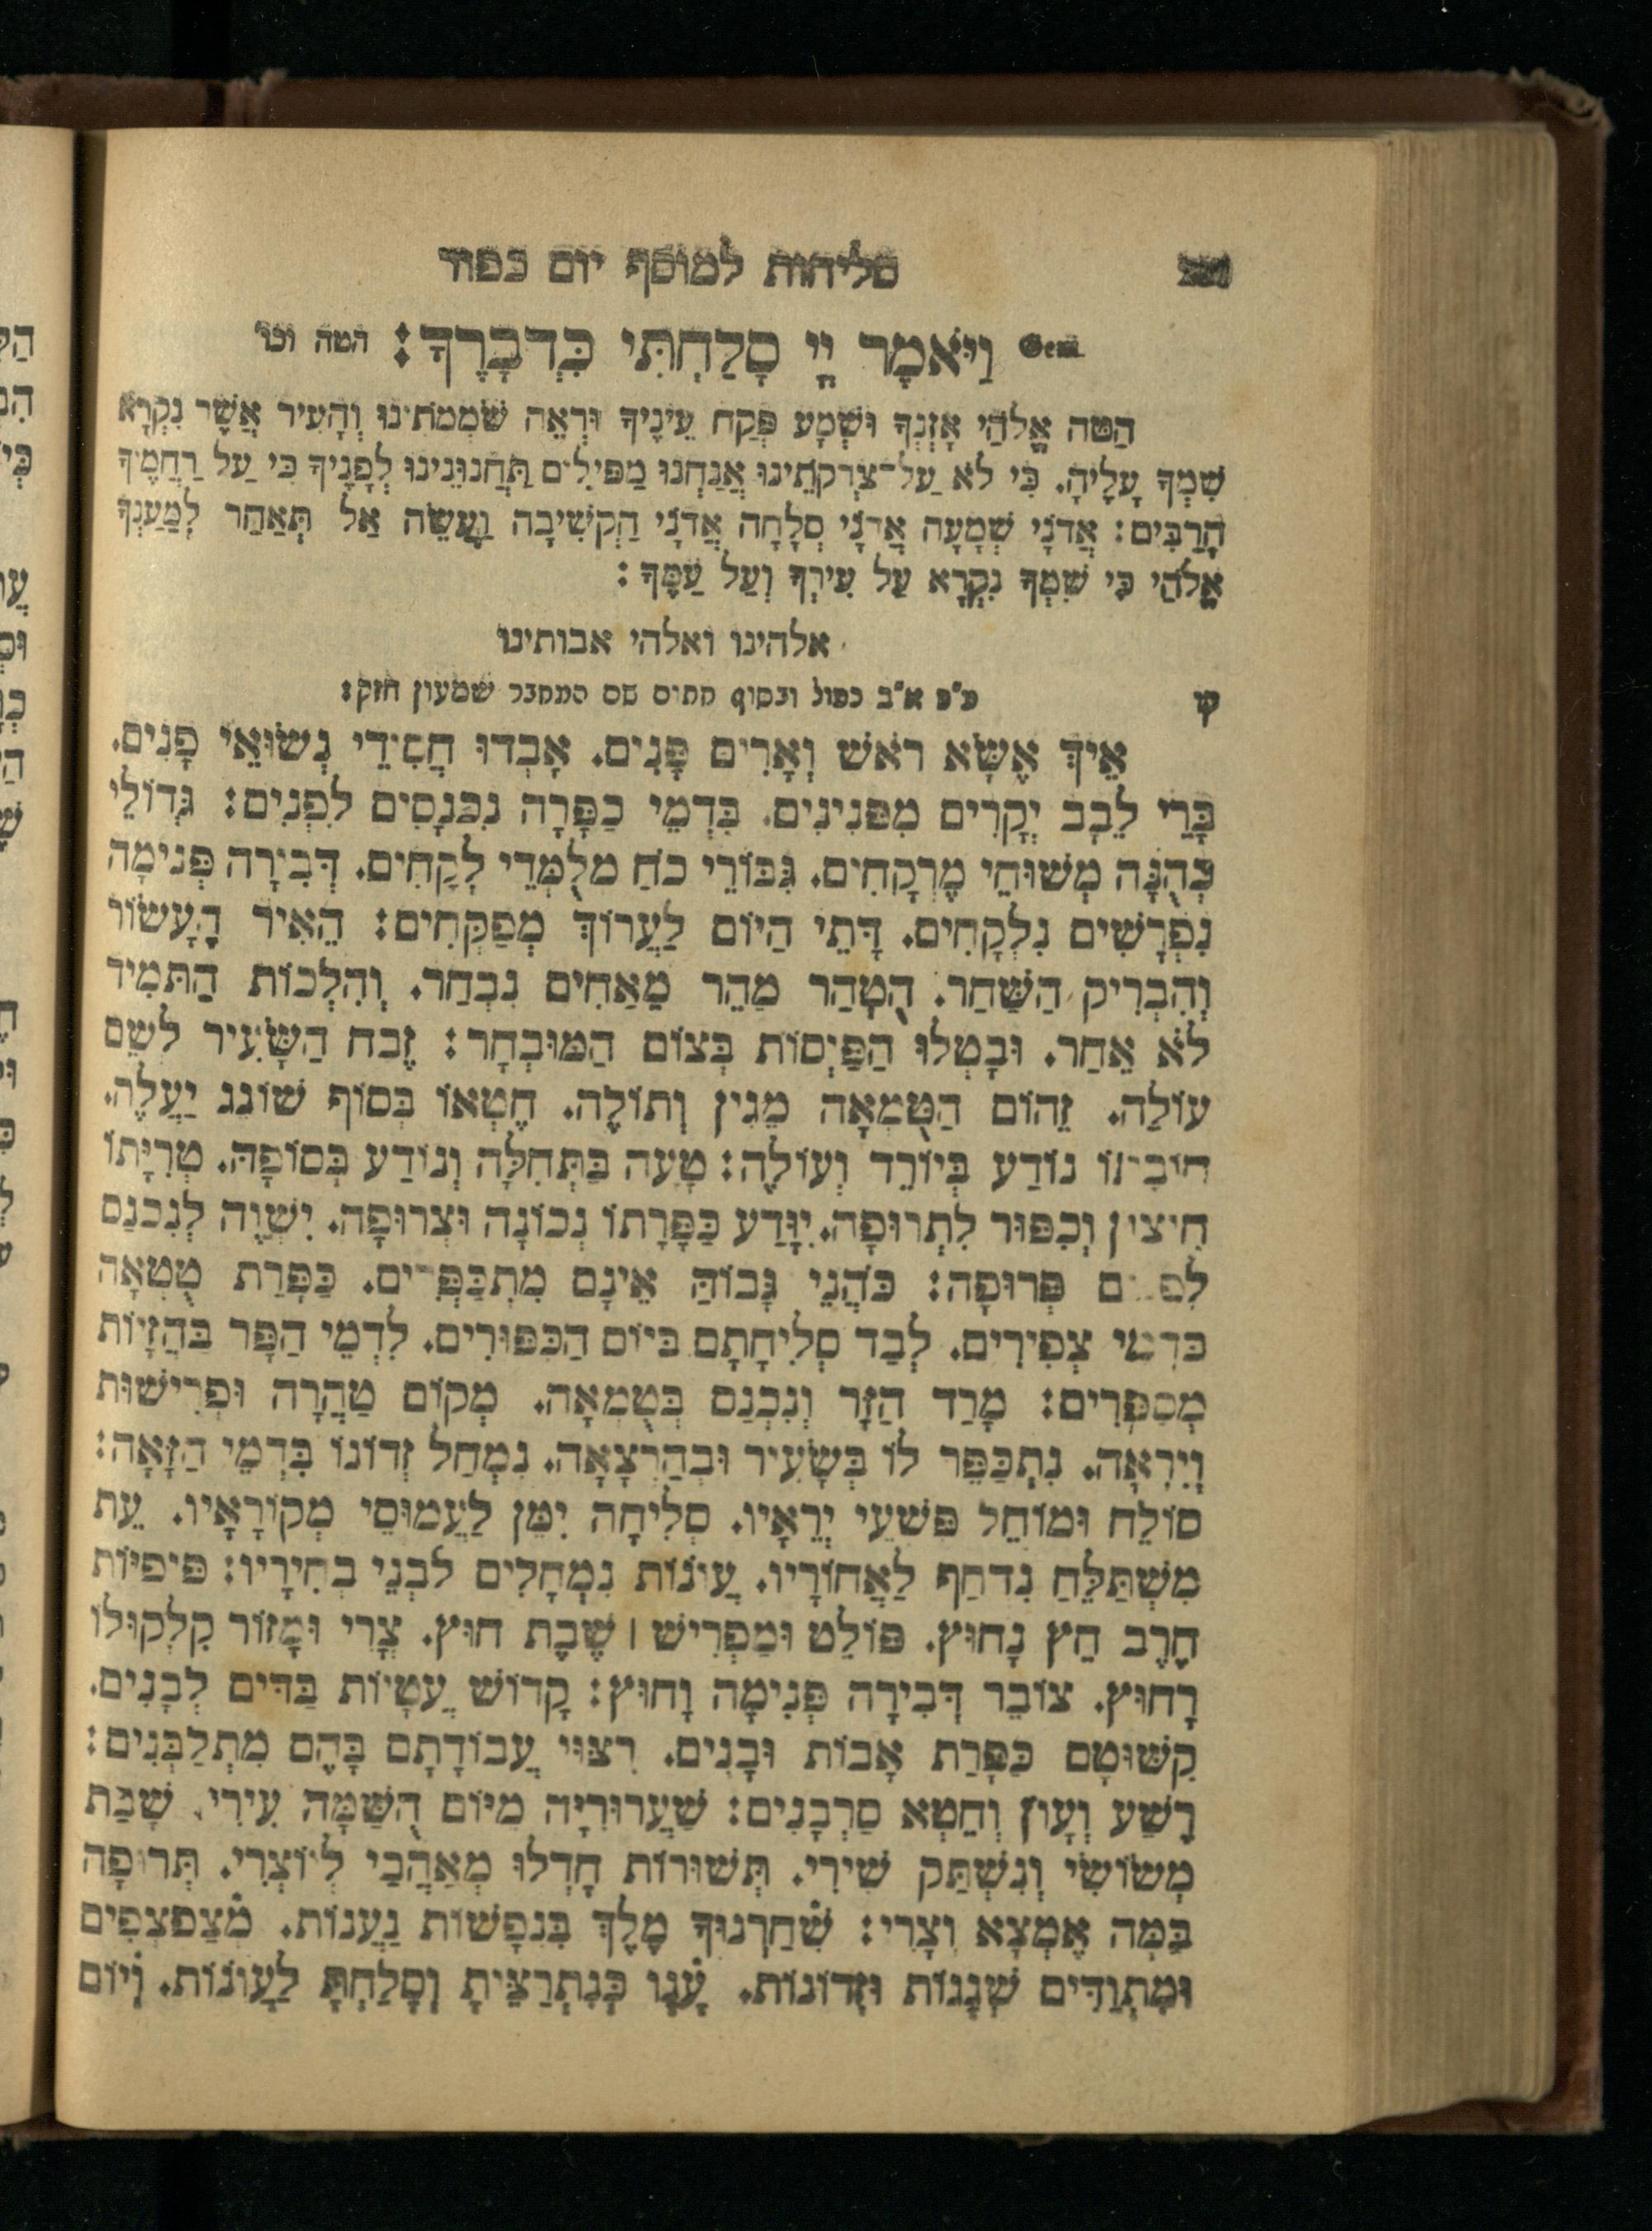 סליחות למוסף יום כפור
Gem. וַיֹּאמֶר יְיָ סָלַחְתִּי כִּדְבָרֶךָ: הטה וכו'
הַטֵּה אֱלֹהַי אָזְנְךָ וּשְׁמָע פְּקַח עֵינֶיךָ וּרְאֵה שֹׁמְמֹתֵינוּ וְהָעִיר אֲשֶׁר נִקְרָא
שִׁמְךָ עָלֶיהָ. כִּי לֹא עַל־צִדְקֹתֵינוּ אֲנַחְנוּ מַפִּילִים תַּחֲנוּנֵינוּ לְפָנֶיךָ כִּי עַל רַחֲמֶיךָ
הָרַבִּים: אֲדֹנָי שְׁמָעָה אֲדֹנָי סְלָחָה אֲדֹנָי הַקְשִׁיבָה וַעֲשֵׂה אַל תְּאַחַר לְמַעַנְךָ
אֱלֹהַי כִּי שִׁמְךָ נִקְרָא עַל עִירְךָ וְעַל עַמֶּךָ:
אלהינו ואלהי אבותינו
ק ע"פ א"ב כפול ובסוף חתום שם המחבר שמעון חזק:
אֵיךְ אֶשָּׂא רֹאשׁ וְאָרִים פָּנִים. אָבְדוּ חֲסִידֵי נְשׂוּאֵי פָנִים.
בָּרֵי לֵבָב יְקָרִים מִפְּנִינִים. בִּדְמֵי כַפָּרָה נִכְנָסִים לִפְנִים: גְּדוֹלֵי
כְהֻנָּה מְשׁוּחֵי מֶרְקָחִים. גִּבּוֹרֵי כֹחַ מְלֻמְּדֵי לְקָחִים. דְּבִירָה פְּנִימָה
נִפְרָשִׁים נִלְקָחִים. דָּתֵי הַיּוֹם לַעֲרוֹךְ מְפַקְּחִים: הֵאִיר הֶעָשׂוֹר
וְהִבְרִיק הַשַּׁחַר. הֻטְהַר מַהֵר מֵאַחִים נִבְחַר. וְהִלְכוֹת הַתָּמִיד
לֹא אֵחַר. וּבָטְלוּ הַפַּיְסוֹת בְּצוֹם הַמּוּבְחָר: זֶבַח הַשָּׂעִיר לְשֵׁם
עוֹלָה. זֵהוּם הַטֻּמְאָה מֵגִין וְתוֹלֶה. חֶטְאוֹ בְּסוֹף שׁוֹגֵג יַעֲלֶה.
חוֹבָתוֹ נוֹדַע בְּיוֹרֵד וְעוֹלֶה: טָעָה בַּתְּחִלָּה וְנוֹדַע בְּסוֹפָהּ. טְרִיָּתוֹ
חִיצוֹן וְכִפּוּר לִתְרוּפָה. יִוָּדַע כַּפָּרָתוֹ נְכוֹנָה וּצְרוּפָה. יִשְׁוֶה לְנִכְנַס
פְּרוּפָה: כֹּהֲנֵי גָבוֹהַּ אֵינָם מִתְכַּפְּרִים. כַּפָּרַת טֻמְאָה
צְפִירִים. לְבַד סְלִיחָתָם בְּיוֹם הַכִּפּוּרִים. לִדְמֵי הַפָּר בְּהַזָּיוֹת
מְסַפְּרִים: מָרַד הַזָּר וְנִכְנַס בְּטֻמְאָה. מְקוֹם טַהֲרָה וּפְרִישׁוּת
וְיִרְאָה. נִתְכַּפֵּר לוֹ בְּשָׂעִיר וּבְהַרְצָאָה. נִמְחַל זְדוֹנוֹ בִּדְמֵי הַזָּאָה:
סוֹלֵחַ וּמוֹחֵל פִּשְׁעֵי יְרֵאָיו. סְלִיחָה יִתֵּן לַעֲמוּסֵי מְקוֹרָאָיו. עֵת
מִשְׁתַּלֵּחַ נִדְחַף לַאֲחוֹרָיו. עֲוֹנוֹת נִמְחָלִים לִבְנֵי בְחִירָיו: פִּיפִיּוֹת
חֶרֶב חֵץ נָחוּץ. פּוֹלֵט וּמַפְרִישׁ שֶׁבֶת חוּץ. צֳרִי וּמָזוֹר קִלְקוּלוֹ
רָחוּץ. צוֹבֵר דְּבִירָה פְּנִימָה וָחוּץ: קָדוֹשׁ עֲטָיוֹת בַּדִּים לְבָנִים.
קִשּׁוּטָם כַּפָּרַת אָבוֹת וּבָנִים. רִצּוּי עֲבוֹדָתָם בָּהֶם מִתְלַבְּנִים:
רֶשַׁע וְעָוֹן וְחֵטְא סַרְבָנִים: שַׁעֲרוּרִיָּה מִיּוֹם הֻשַּׁמָּה עִירִי. שָׁבַת
מְשׂוֹשִׂי וְנִשְׁתַּק שִׁירִי. תְּשׁוּרוֹת חָדְלוּ מְאַהֲבַי לְיוֹצְרִי. תְּרוּפָה
בַּמֶּה אֶמְצָא וְצָרִי: שִׁחַרְנוּךָ מֶלֶךְ בִּנְפָשׁוֹת נַעֲנוֹת. מְצַפְצְפִים
וּמִתְוַדִּים שְׁגָגוֹת וּזְדוֹנוֹת. עֲנֵנוּ כְּנִתְרַצֵּיתָ וְסָלַחְתָּ לַעֲוֹנוֹת. וְיוֹם